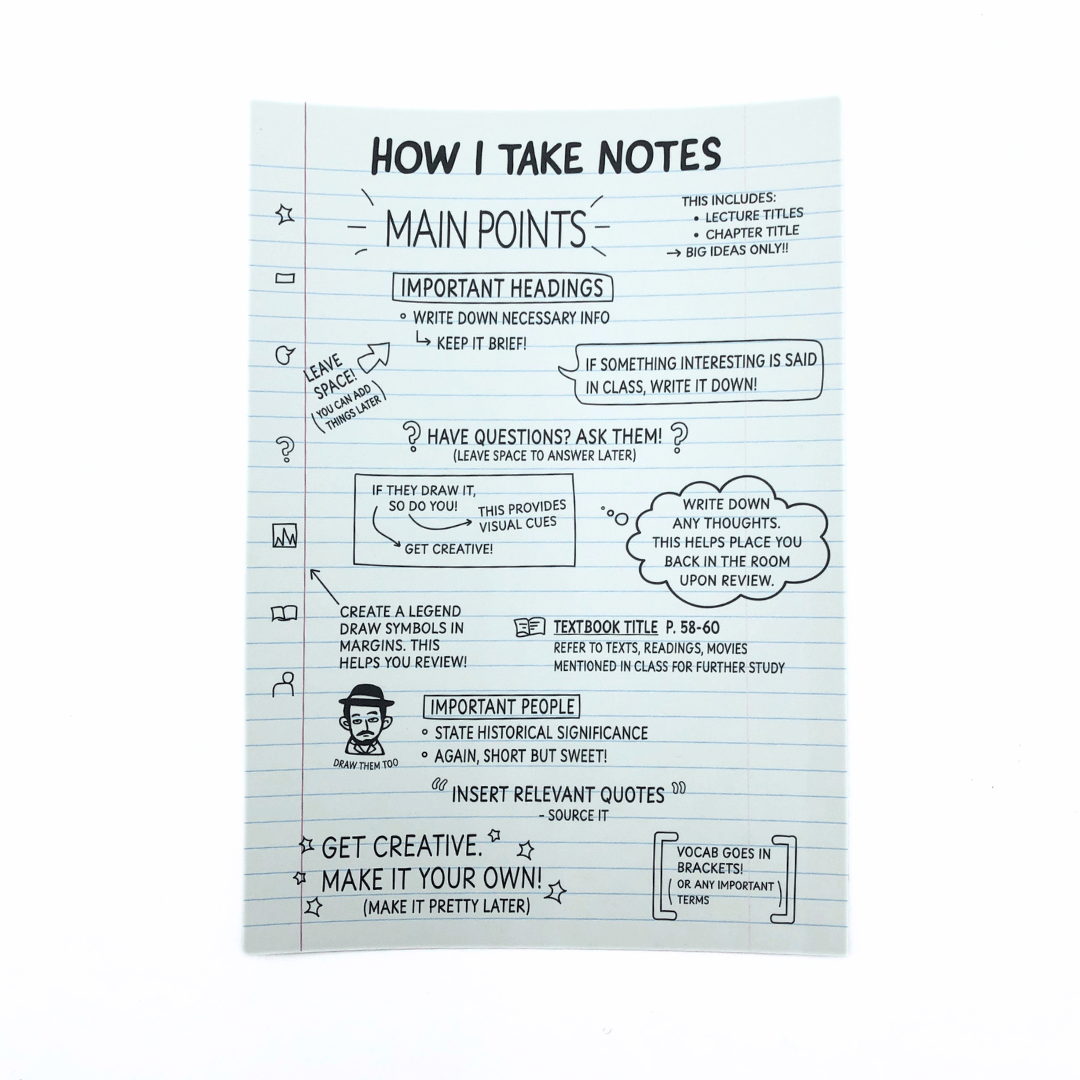 HOW I TAKE NOTES
MAIN POINTS
THIS INCLUDES:
• LECTURE TITLES
• CHAPTER TITLE
→ BIG IDEAS ONLY!!
IMPORTANT HEADINGS
° WRITE DOWN NECESSARY INFO
↳ KEEP IT BRIEF!
LEAVE
SPACE!
(YOU CAN ADD
THINGS LATER)
IF SOMETHING INTERESTING IS SAID
IN CLASS, WRITE IT DOWN!
? HAVE QUESTIONS? ASK THEM! ?
(LEAVE SPACE TO ANSWER LATER)
?
IF THEY DRAW IT,
SO DO YOU!
THIS PROVIDES
VISUAL CUES
GET CREATIVE!
WRITE DOWN
ANY THOUGHTS.
THIS HELPS PLACE YOU
BACK IN THE ROOM
UPON REVIEW.
CREATE A LEGEND
DRAW SYMBOLS IN
MARGINS. THIS
HELPS YOU REVIEW!
TEXTBOOK TITLE P. 58-60
REFER TO TEXTS, READINGS, MOVIES
MENTIONED IN CLASS FOR FURTHER STUDY
IMPORTANT PEOPLE
° STATE HISTORICAL SIGNIFICANCE
° AGAIN, SHORT BUT SWEET!
DRAW THEM TOO
“INSERT RELEVANT QUOTES”
- SOURCE IT
GET CREATIVE.
MAKE IT YOUR OWN!
(MAKE IT PRETTY LATER)
[VOCAB GOES IN
BRACKETS!
(OR ANY IMPORTANT
TERMS)]